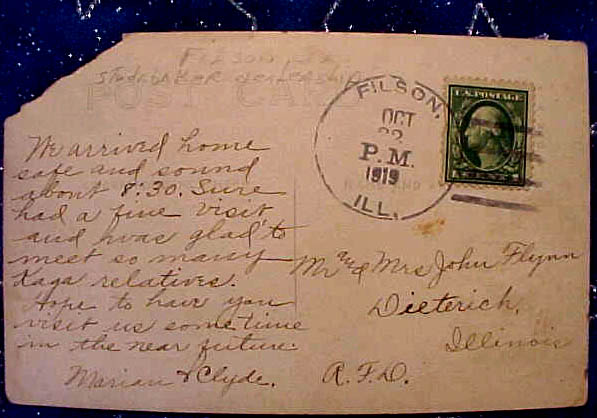 FILSON, ILL.
STUDEBAKER DEALERSHIP
POST CARD
FILSON,
OCT
22
P.M.
1919
ILL.
U.S. POSTAGE
1 CENT 1
We arrived home
safe and sound
about 8:30. Sure
had a fine visit
and was glad to
meet so many
relatives.
Hope to have you
visit us sometime
in the near future.
Marian & Clyde.
Mr. & Mrs John Flynn
Dieterich,
Illinois
R.F.D.